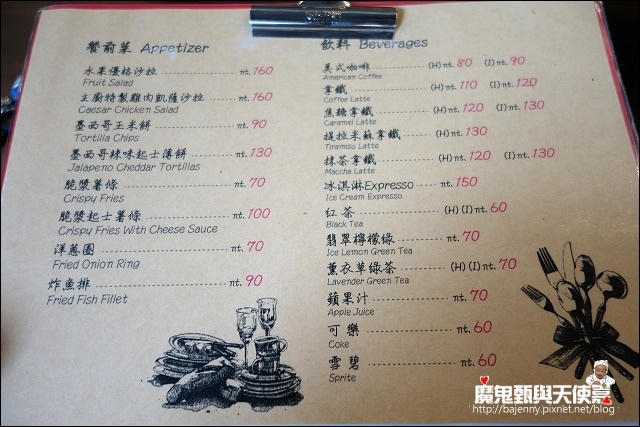 餐前菜 Appetizer
水果優格沙拉 nt. 160
Fruit Salad
主廚特製雞肉凱薩沙拉 nt. 160
Caesar Chicken Salad
墨西哥玉米餅 nt. 90
Tortilla Chips
墨西哥辣味起士薄餅 nt. 130
Jalapeno Cheddar Tortillas
脆漿薯條 nt. 70
Crispy Fries
脆漿起士薯條 nt. 100
Crispy Fries With Cheese Sauce
洋蔥圈 nt. 70
Fried Onion Ring
炸魚排 nt. 90
Fried Fish Fillet
飲料 Beverages
美式咖啡 (H) nt. 80 (I) nt. 90
American Coffee
拿鐵 (H) nt. 110 (I) nt. 120
Coffee Latte
焦糖拿鐵 (H) nt. 120 (I) nt. 130
Caramel Latte
提拉米蘇拿鐵 (H) nt. 130
Tiramisu Latte
抹茶拿鐵 (H) nt. 120 (I) nt. 130
Maccha Latte
冰淇淋Expresso nt. 150
Ice Cream Expresso
紅茶 (H) (I) nt. 60
Black Tea
翡翠檸檬綠 nt. 70
Ice Lemon Green Tea
薰衣草綠茶 (H) (I) nt. 70
Lavender Green Tea
蘋果汁 nt. 70
Apple Juice
可樂 nt. 60
Coke
雪碧 nt. 60
Sprite
魔鬼甄與天使嘉
http://bajenny.pixnet.net/blog